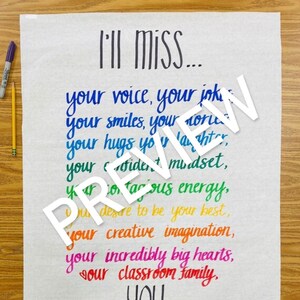 I'll miss...
your voice, your jokes,
your smiles, your stories,
your hugs your laughter,
your confident mindset,
your contagious energy,
your desire to be your best,
your creative imagination,
your incredibly big hearts,
your classroom family,
YOU
PREVIEW